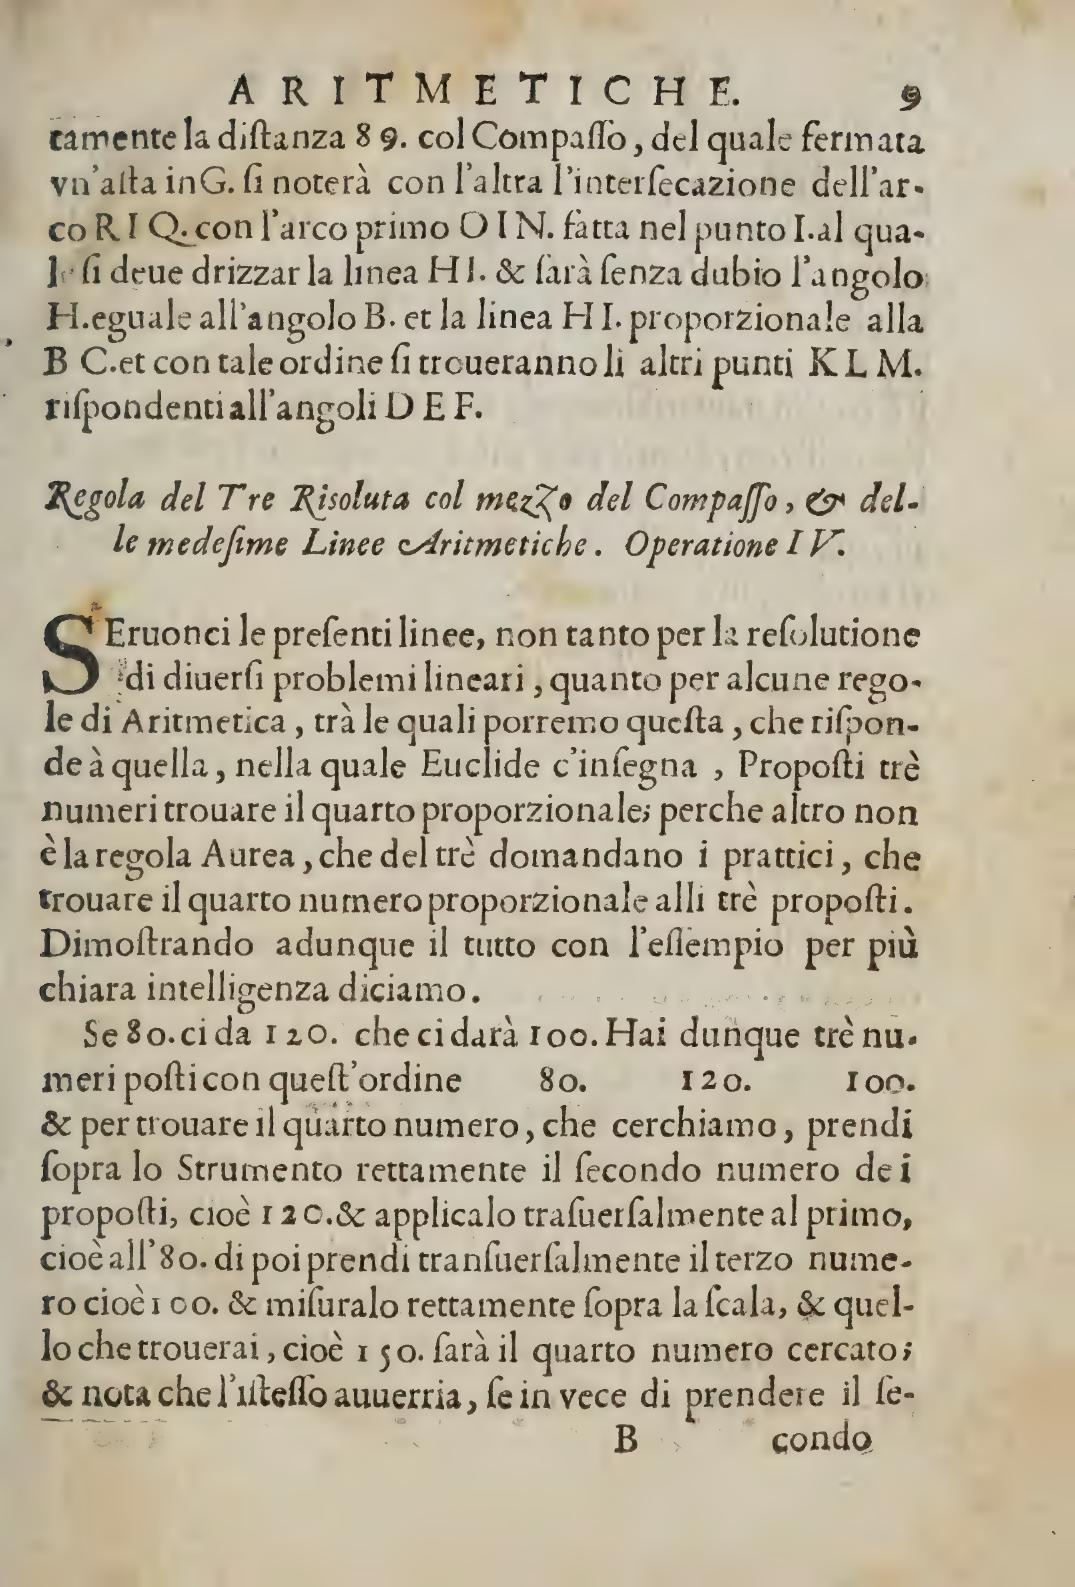 ARITMETICHE. 9
tamente la diſtanza 89. col Compaſſo, del quale fermata
vn'aſta in G. ſi noterà con l'altra l'interſecazione dell'ar-
co R I Q. con l'arco primo O I N. fatta nel punto I. al qua-
le ſi deue drizzar la linea H I. & ſarà ſenza dubio l'angolo
H. eguale all'angolo B. et la linea H I. proporzionale alla
B C. et con tale ordine ſi troueranno li altri punti K L M.
riſpondenti all'angoli D E F.
Regola del Tre Risoluta col mezzo del Compaſſo, & del-
le medeſime Linee Aritmetiche. Operatione IV.
SEruonci le preſenti linee, non tanto per la reſolutione
di diuerſi problemi lineari, quanto per alcune rego-
le di Aritmetica, trà le quali porremo queſta, che riſpon-
de à quella, nella quale Euclide c'inſegna, Propoſti trè
numeri trouare il quarto proporzionale; perche altro non
è la regola Aurea, che del trè domandano i prattici, che
trouare il quarto numero proporzionale alli trè propoſti.
Dimoſtrando adunque il tutto con l'eſſempio per più
chiara intelligenza diciamo.
Se 80. ci da 120. che ci darà 100. Hai dunque trè nu-
meri poſti con queſt'ordine 80. 120. 100.
& per trouare il quarto numero, che cerchiamo, prendi
ſopra lo Strumento rettamente il ſecondo numero de i
propoſti, cioè 120. & applicalo traſuerſalmente al primo,
cioè all'80. di poi prendi tranſuerſalmente il terzo nume-
ro cioè 100. & miſuralo rettamente ſopra la ſcala, & quel-
lo che trouerai, cioè 150. ſarà il quarto numero cercato;
& nota che l'iſteſſo auuerria, ſe in vece di prendere il ſe-
B condo